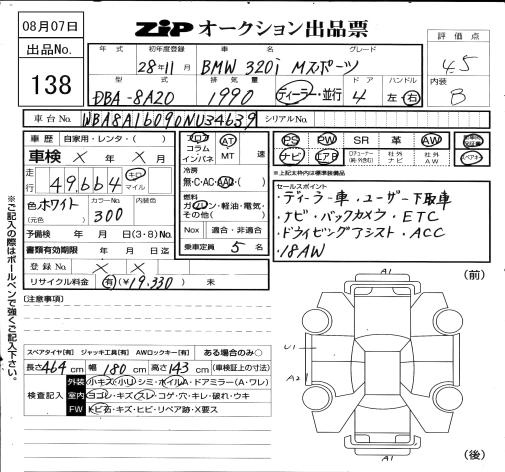 08月07日
ZIP オークション出品票
出品No.
138
評価点
4.5
内装
B
年式 初年度登録 車名 グレード
28年11月 BMW 320i Mスポーツ
型式 排気量 ドア ハンドル
DBA-8A20 1990 ディーラー・並行 4 左・右
車台No. WBA8A16090NU34639 シリアルNo.
車歴 自家用・レンタ・( )
車検 × 年 × 月
走行 49,664 キロ マイル
色 ホワイト (元色) カラーNo. 300 色替
予備検 年 月 日(3・8)No.
書類有効期限 年 月 日迄
登録No. × ×
リサイクル料金 有(¥19,330) 未
フロア コラム インパネ AT MT 速
冷房
無・C・AC・AAC
燃料
ガソリン・軽油・電気・その他( )
Nox 適合・非適合
乗車定員 5 名
PS PW SR 革 AW
ナビ エアB 社外ナビ 社外AW
※上記太枠内は標準装備品
セールスポイント
・ディーラー車・ユーザー下取車
・ナビ・バックカメラ・ETC
・ドライビングアシスト・ACC
・18AW
【注意事項】
スペアタイヤ【有】 ジャッキ工具【有】 AWロックキー【有】 ある場合のみ○
長さ 464 cm 幅 180 cm 高さ 143 cm (車検証上の寸法)
検査記入
外装 小キズ・小リ・シミ・ホイルA・ドアミラー(A・ワレ)
室内 ヨゴレ・キズ・スレ・コゲ・穴・キレ・破れ・ウキ
FW トビ石・キズ・ヒビ・リペア跡・X要ス
※ご記入の際はボールペンで強くご記入下さい。
A1
(前)
U1
A2
A1
(後)